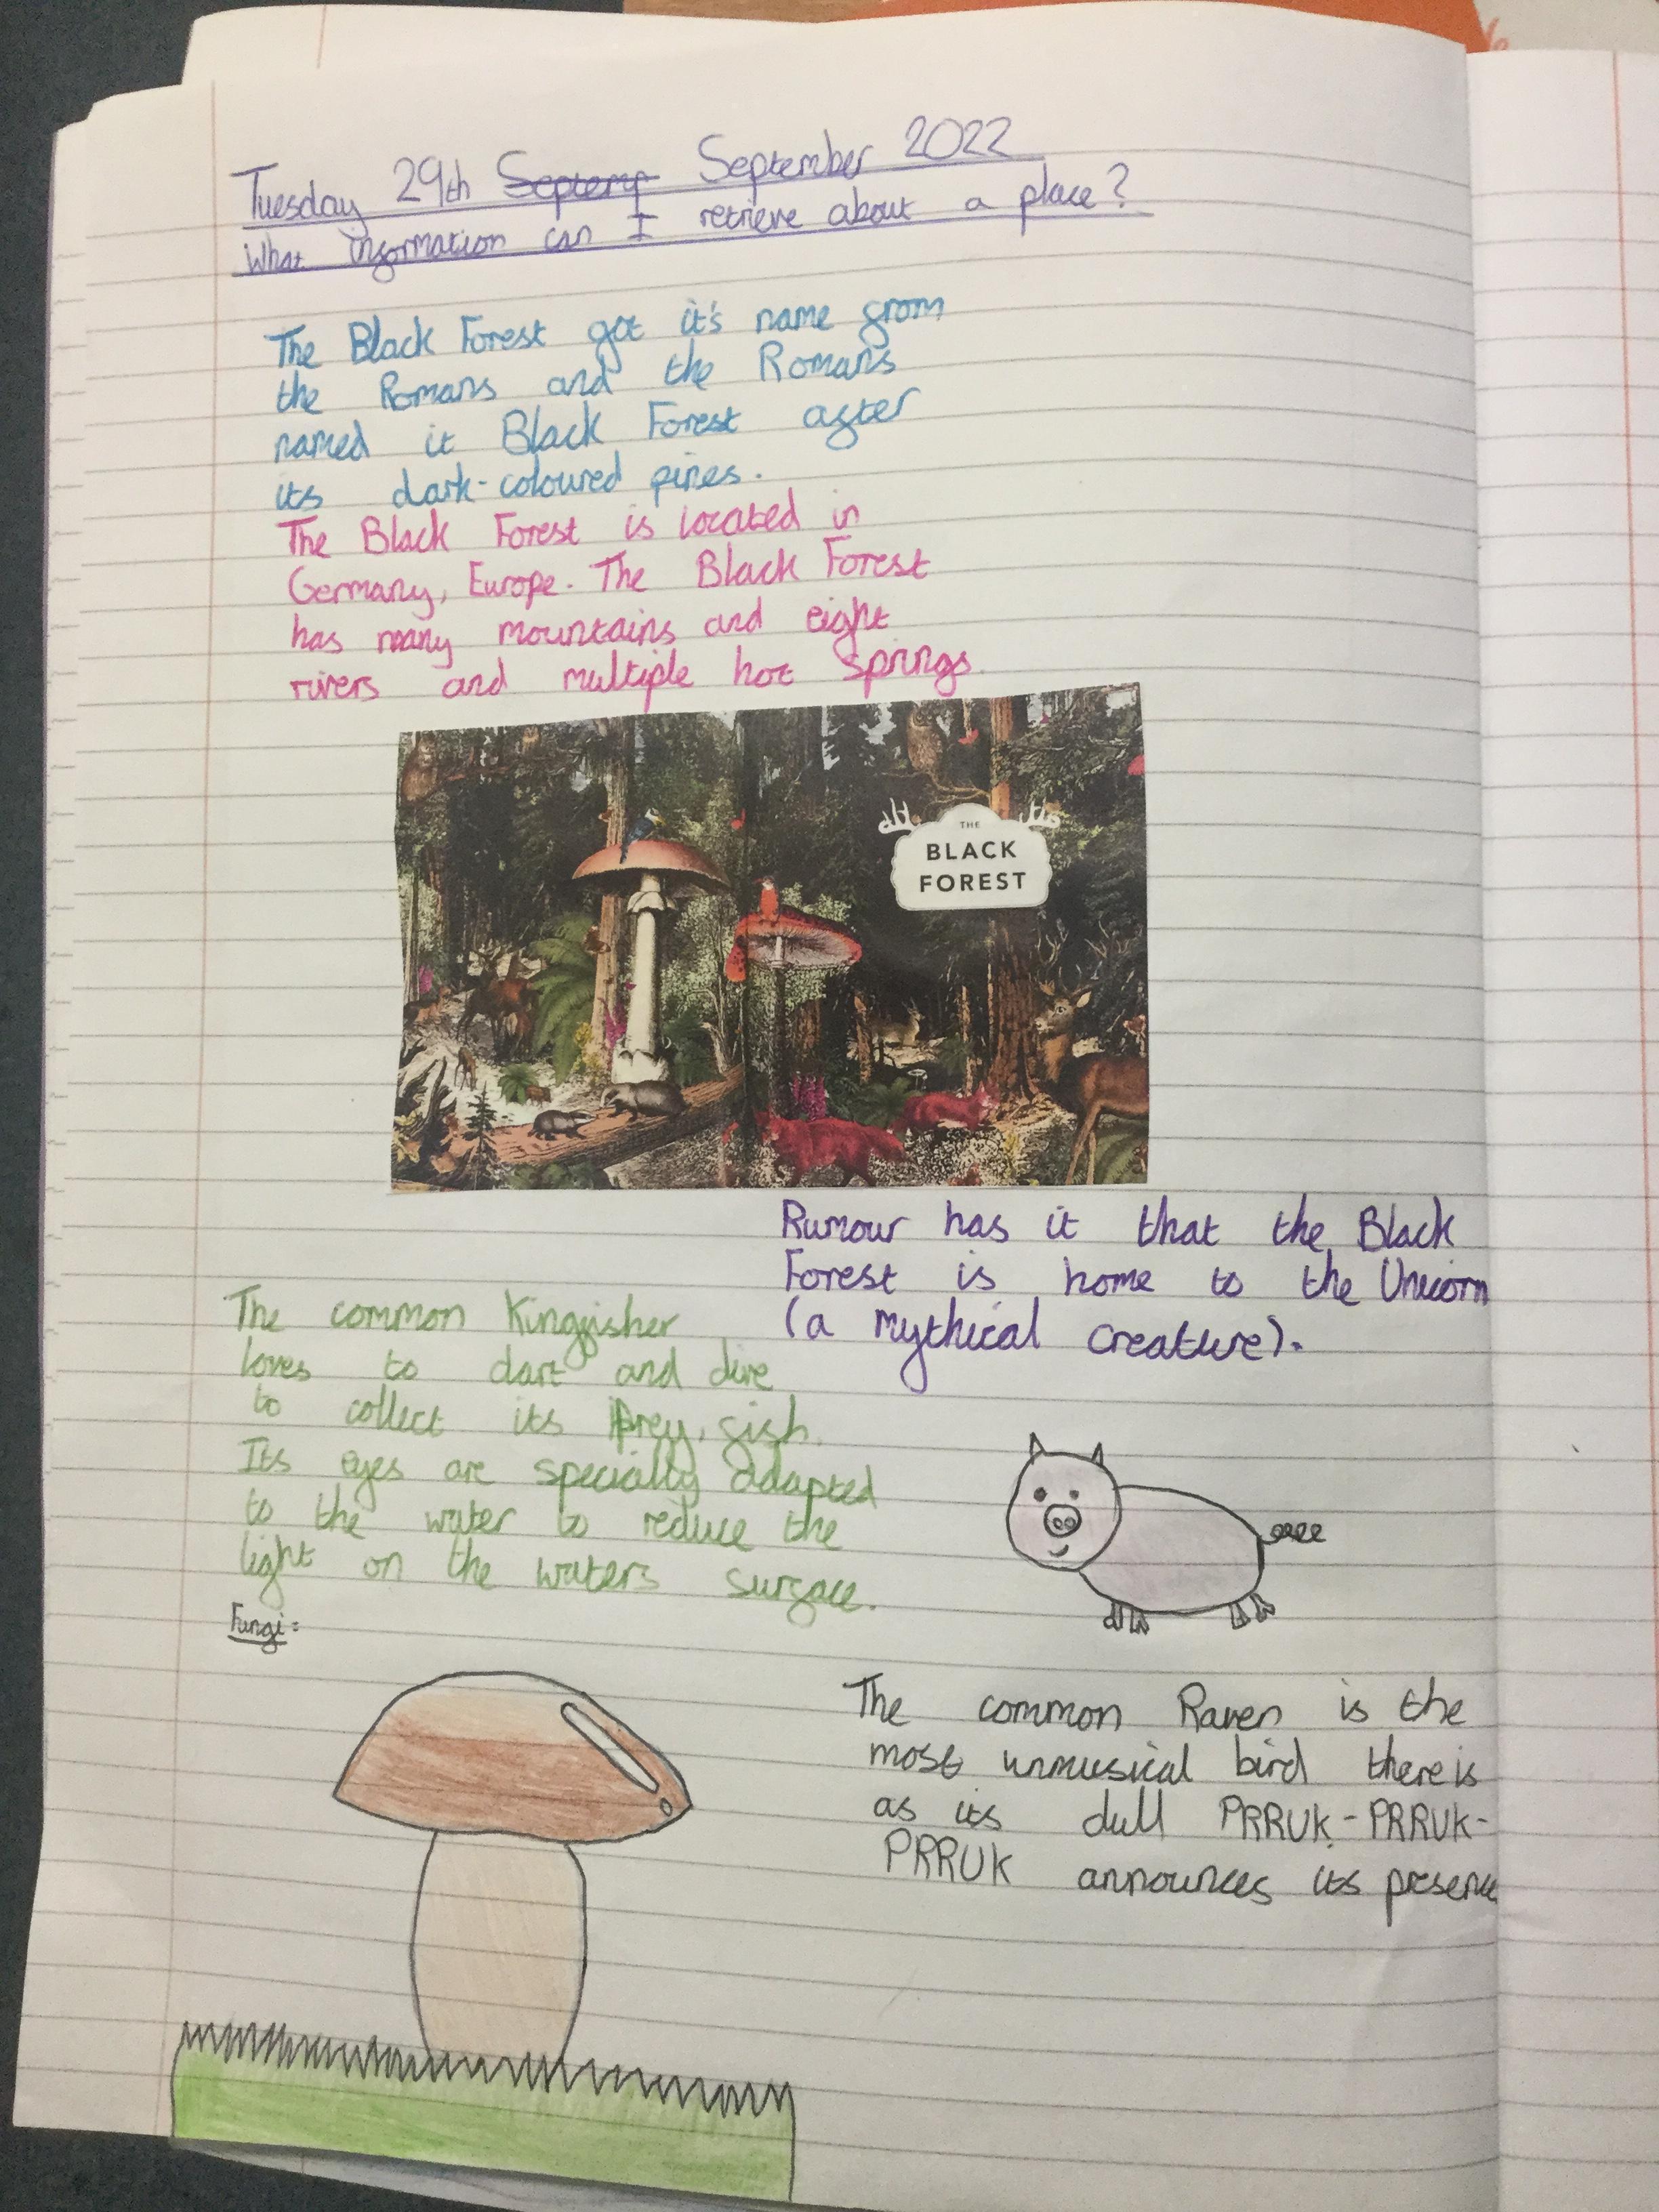 Tuesday 29th Septemp September 2022
What information can I retrieve about a place?
The Black Forest got it's name from
the Romans and the Romans
named it Black Forest after
its dark-coloured pines.
The Black Forest is located in
Germany, Europe. The Black Forest
has many mountains and eight
rivers and multiple hot springs.
THE
BLACK
FOREST
Rumour has it that the Black
Forest is home to the Unicorn
(a mythical creature).
The common Kingfisher
loves to dart and dive
to collect its prey, fish.
Its eyes are specially adapted
to the water to reduce the
light on the waters surface.
Fungi:
The common Raven is the
most unmusical bird there is
as its dull PRRUK-PRRUK-
PRRUK announces its presence